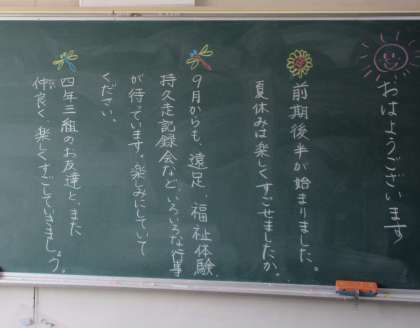 おはようございます
前期後半が始まりました。
夏休みは楽しくすごせましたか。
9月からも、遠足、福祉体験、
持久走記録会などいろいろな行事
が待っています。楽しみにしていて
ください。
四年三組のお友達と、また
仲良く、楽しくすごしていきましょう。